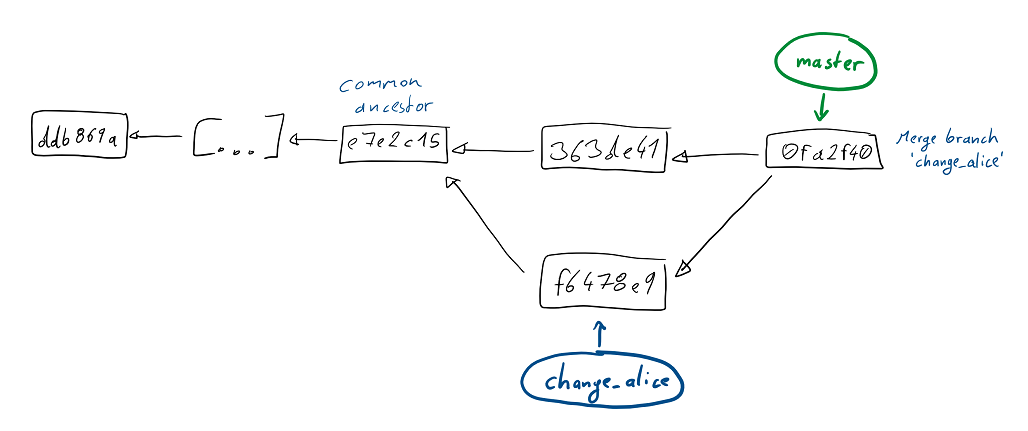 master
common
ancestor
ddb869a
[...]
e7e2c15
363de41
0fa2f40
Merge branch
'change_alice'
f6478e9
change_alice